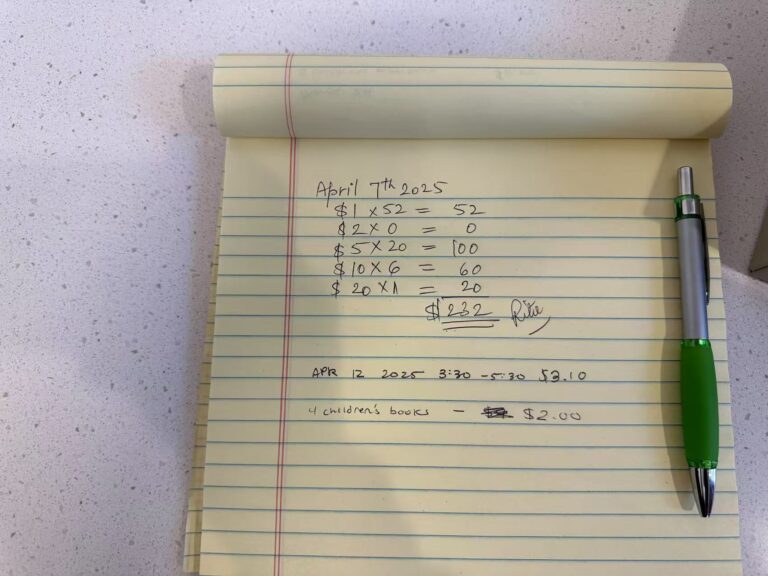 April 7th 2025
$1 x 52 = 52
$2 x 0 = 0
$5 x 20 = 100
$10 x 6 = 60
$20 x 1 = 20
$232
APR 12 2025 3:30 - 5:30 $3.10
4 children's books - $2.00